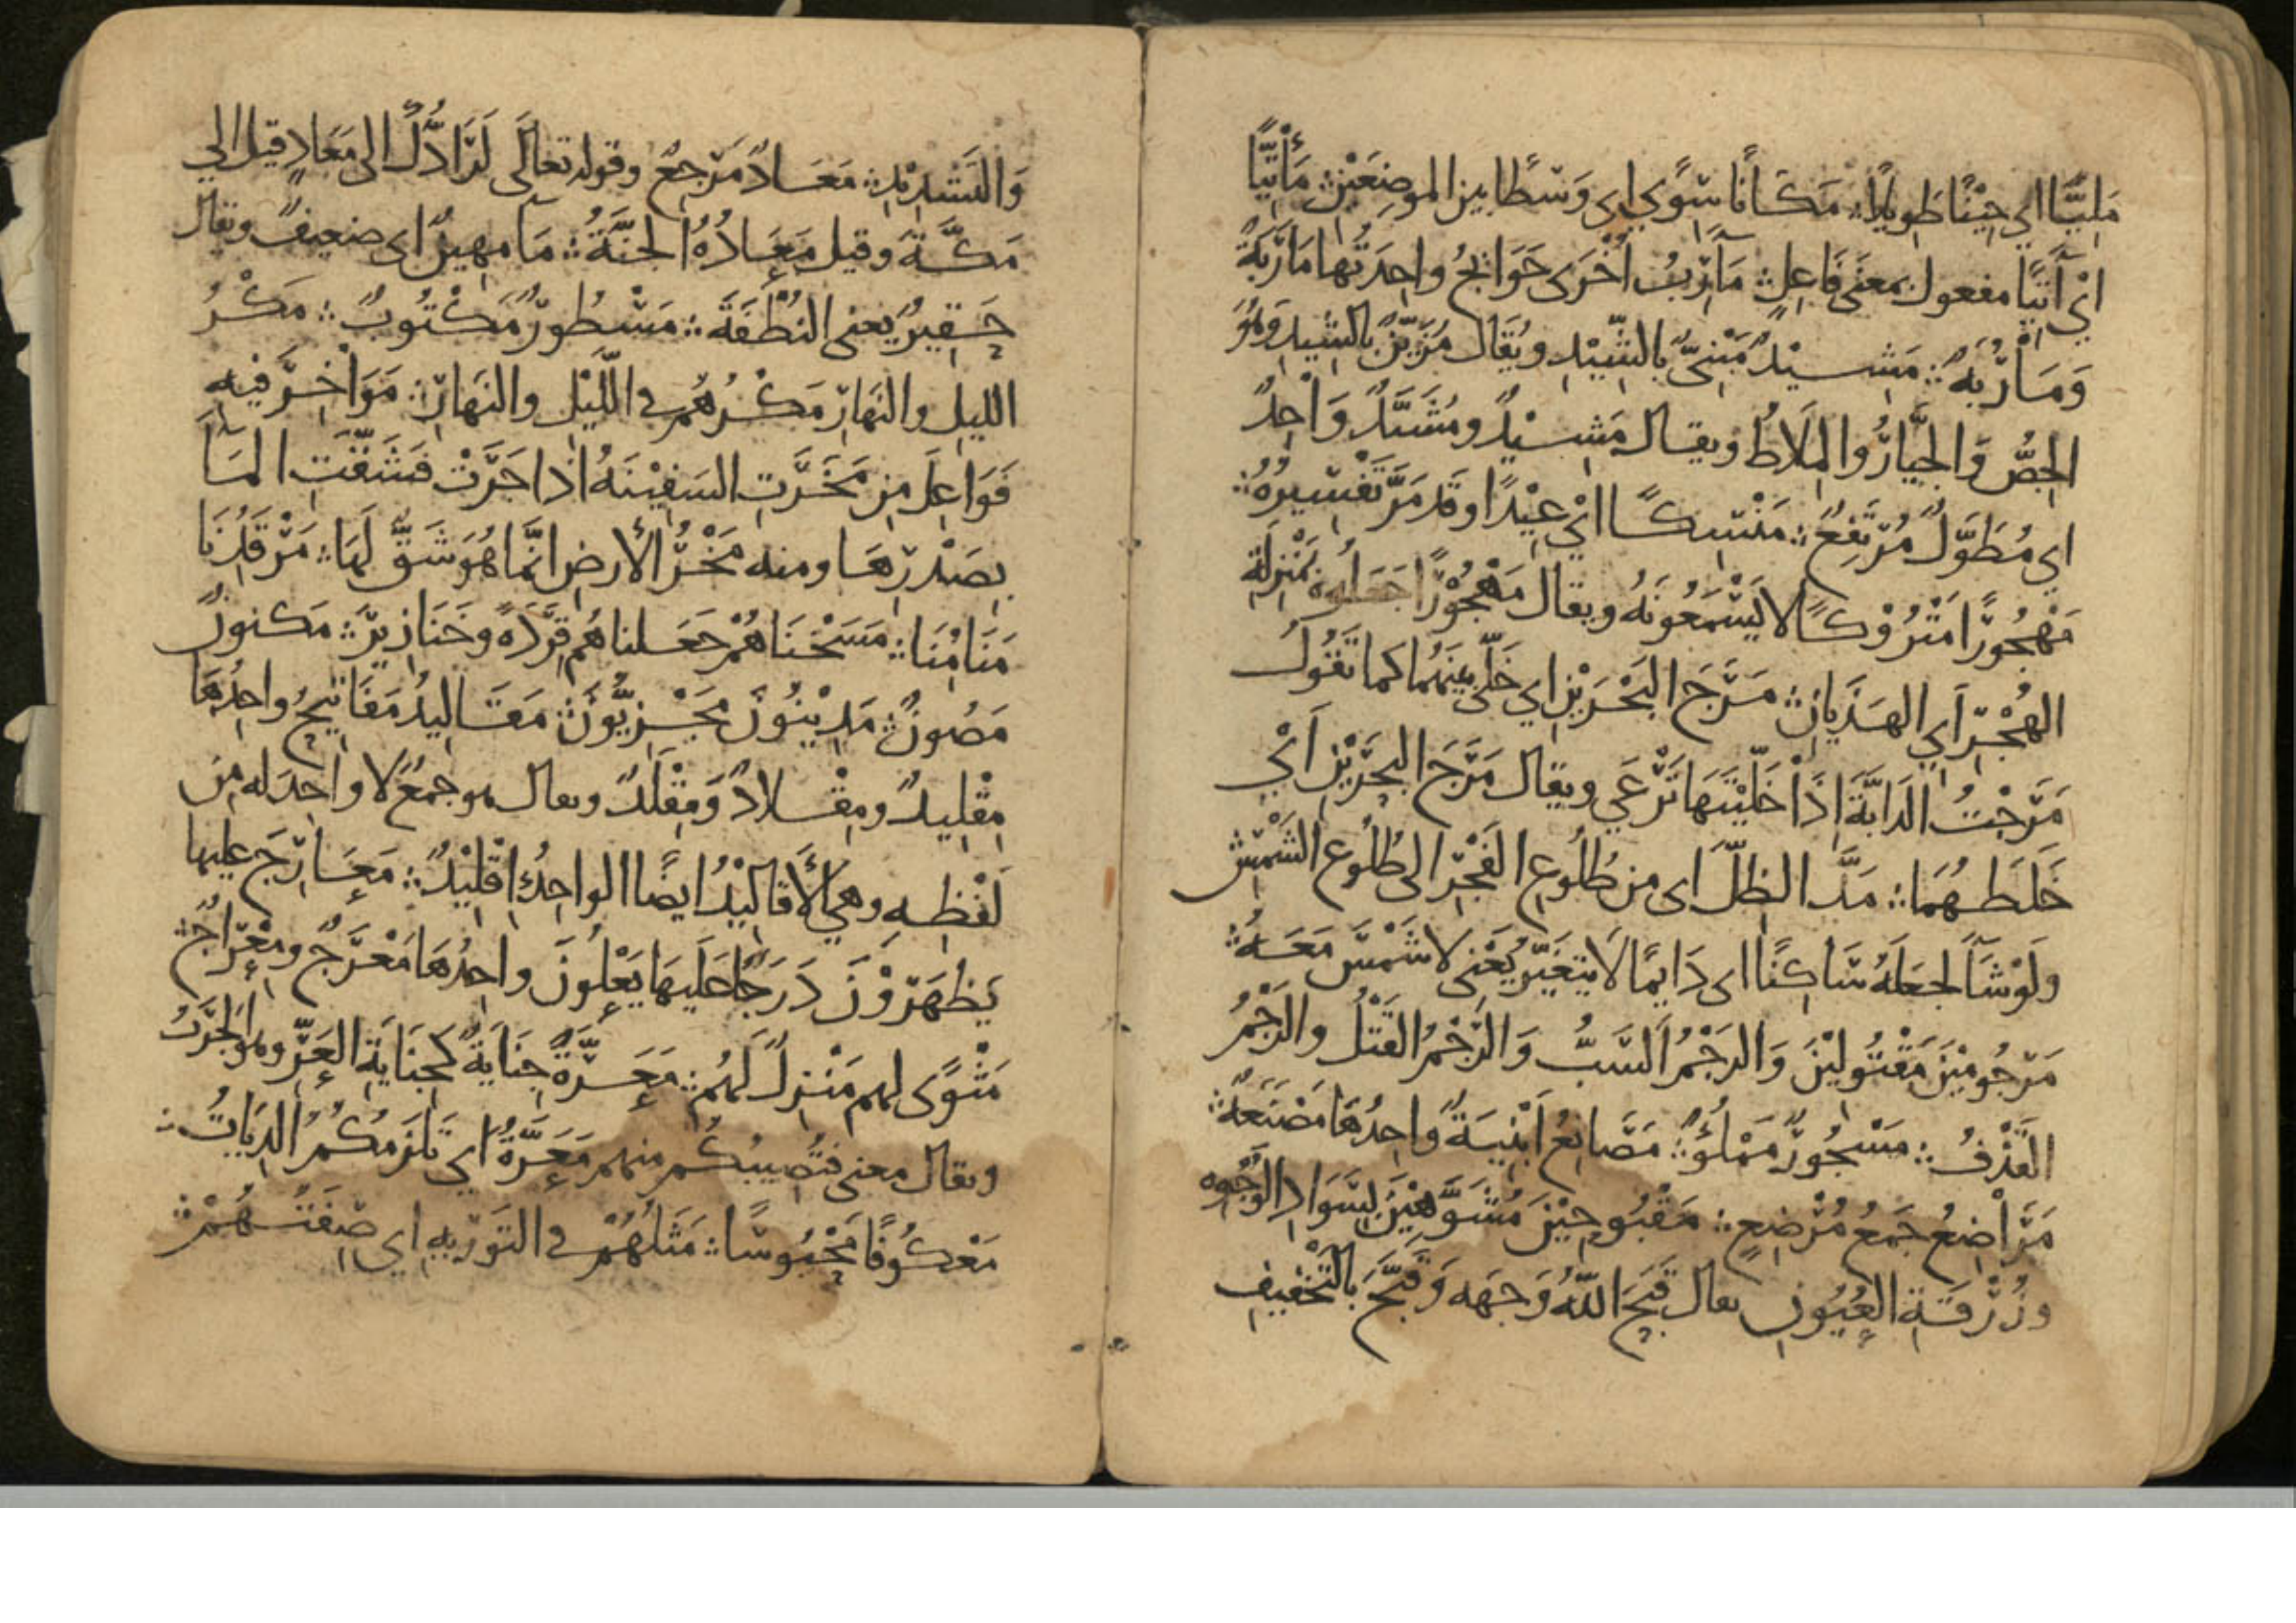 مَلِيًّا اي حِيْنًا طَويلاً ؞ مَكَانًا سِوًي اي وَسَطا بين الموضِعَيْنِ ؞ مَأْتِيًّا
ايْ آتِيًا مفعول بمعنَى فَاعِلٍ ؞ مَآرِبُ اُخْرَى حَوَائجُ واحِدَتُها مَارَبَةٌ
وَمَارُبَةٌ ؞ مَشِيْدٌ مَبْنِىٌّ بالشِّيْدِ ويُقَال مُزَيَّنٌ بالشِّيدِ وَهُوَ
الجِصُّ وَالجَيَّارُ والمِلَاطُ ويقال مَشِيْدٌ ومُشَيَّدٌ وَاحِدٌ
اي مُطَوَّلٌ مُرْتَفِعٌ ؞ مَنْسِكًا ايْ عِيْدًا وقد مَرَّ تَفْسِيرُهُ ؞
مَهْجُورًا مَتْرُوْكًا لا يَسْمَعُونَهُ ويقال مَهْجُوْرًا جَعَلوه بمَنْزِلَةِ
الهُجْرِ اَي الهَذَيَانِ ؞ مَرَجَ البَحْرَيْنِ اي خَلَّى بينَهُما كما تَقُولُ
مَرَجْتُ الدَابَّةَ اِذَا خَلَّيْتَهَا تَرْعَي ويقال مَرَجَ البحرَيْنِ اَيْ
خَلَطَهُمَا ؞ مَدَّ الظِلَّ اى من طُلُوعِ الفَجْرِ الى طُلُوعِ الشَمْسِ
ولَوْ شَآ لَجَعَلَهُ سَاكِنًا اى دَايمًا لَا يتغَيَّرُ يَعْنِى لا شَمْسَ مَعَهُ ؞
مَرْجُومِيْنَ مَقْتُولِيْنَ وَالرَجْمُ السَّبُّ وَالرَجْمُ القَتْلُ والرَجْمُ
القَذْفُ ؞ مَسْجُورٌ مَمْلُوٌّ ؞ مَصَانِعُ اَبْنِيَةٌ واحِدُهَا مَصْنَعَةٌ ؞
مَرَاضِعُ جَمْعُ مُرْضِعٍ ؞ مَقْبُوحِيْنَ مُشَوَّهِيْنَ بِسَوَادِ الوُجُوهِ
وزُرْقَةِ العُيُونِ يعال قَبَحَ اللّهُ وَجهَه وَقَبَّحَ بالتَخْفيفِ
وَالتَشْدِيْدِ ؞ مَعَادٌ مَرْجِعٌ وقوله تعَالَى لَرَادُّكَ الى مَعَادٍ قيل الي
مَكَّةَ وقيل مَعَادُهُ الجَنَّةُ ؞ مَآ مهِينٌ اى ضعِيفٌ ويقال
حَقِيرٌ يعني النُطْفَةَ ؞ مَسْطُورٌ مَكْتُوبٌ ؞ مَكْرُ
الليلِ والنَهَارِ مَكْرُهُم في اللَّيْلِ والنَهَارِ ؞ مَوَاخِرَ فيهِ
فَوَاعِلَ مِن مَخَرَتِ السَفِيْنَةُ اذا جَرَتْ فَشَقَّتِ المَآ
بِصَدْرِهَا ومنه مَخْرُ الأرضِ انَّما هُوَ شَقٌّ لَهَا ؞ مَرْقَدِنَا
مَنَامِنَا ؞ مَسَخْنَاهُمْ جَعَلناهُم قِرَدَةً وخَنَازِيْرَ ؞ مَكنونٌ
مَصُونٌ ؞ مَدِيْنُونَ مَجْزِيُّونَ ؞ مَقَاليدُ مَفَاتيحُ واحِدُهَا
مِقْلِيدٌ ومِقْلادٌ وَمِقْلَدٌ ويعال هو جَمْعٌ لا واحِدَ له مِن
لَفْظِهِ وهي الأَقاليْدُ ايضًا الواحِدُ اِقْلِيْدٌ ؞ مَعَارِجَ عليها
يَظْهَرُوْنَ دَرَجًا عَلَيها يَعْلُونَ واحِدُهَا مَعْرَجٌ ومِعْرَاجٌ ؞
مَثْوًى لهم مَنْزِلٌ لَهُم ؞ مَعَرَّةٌ جِنَايَةٌ كَجِنَايَةِ العَرِّ وهو الجَرَبُ
ويقال معنى فتُصِيبُكُم منهم مَعَرَّةٌ اي تَلْزَمُكُمُ الدِيَاتُ ؞
مَعْكُوفًا مَحْبُوسًا ؞ مَثَلُهُمْ في التَوْرٰيةِ اي صِفَتُهُمْ ؞